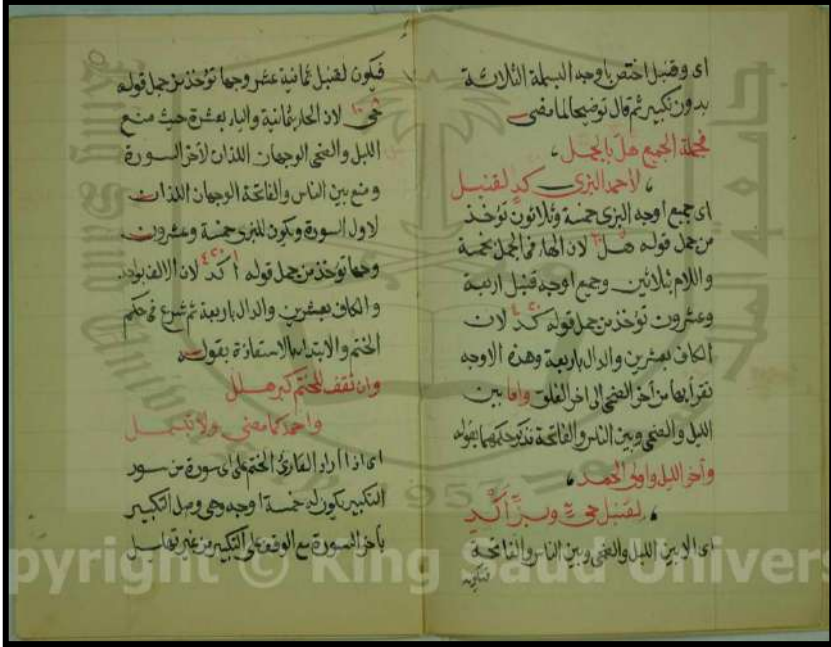 اى وقنبل اختص باوجه البسملة الثلاثة
بدون تكبير ثم قال توضيحا لما مضى
فجملة الجميع هل بالجمل
لاحمد البزى كد لقنبل
اى جميع اوجه البزى خمسة وثلاثون تؤخذ
من جمل قوله هل لان الهاء فى الجمل بخمسة
واللام بثلاثين وجميع اوجه قنبل اربعة
وعشرون تؤخذ من جمل قوله كد لان
الكاف بعشرين والدال باربعة وهذه الاوجه
تقرأ بها من آخر الضحى الى اخر الفلق واما بين
الليل والضحى وبين الناس والفاتحة فذكر حكمهما بقوله
وآخر الليل واولى الحمد
لقنبل حى وبز أكد
اى الا بين الليل والضحى وبين الناس والفاتحة
فيكون
فيكون لقنبل ثمانية عشر وجها تؤخذ من جمل قوله
حى لان الحاء بثمانية والياء بعشرة حيث منع
الليل والضحى الوجهان اللذان لآخر السورة
ومنع بين الناس والفاتحة الوجهان اللذان
لاول السورة ويكون للبزى خمسة وعشرون
وجها تؤخذ من جمل قوله أكد لان الالف بواحد
والكاف بعشرين والدال باربعة ثم شرع فى حكم
الختم والابتداء بالاستعاذة بقوله
وان تقف للختم كبر هلل
واحمد كما مضى ولا تبسمل
اى اذا أراد القارئ الختم على اى سورة من سور
التكبير يكون له خمسة اوجه وهى وصل التكبير
باخر السورة مع الوقف على التكبير من غير تهليل
pyright © King Saud Univers
1957